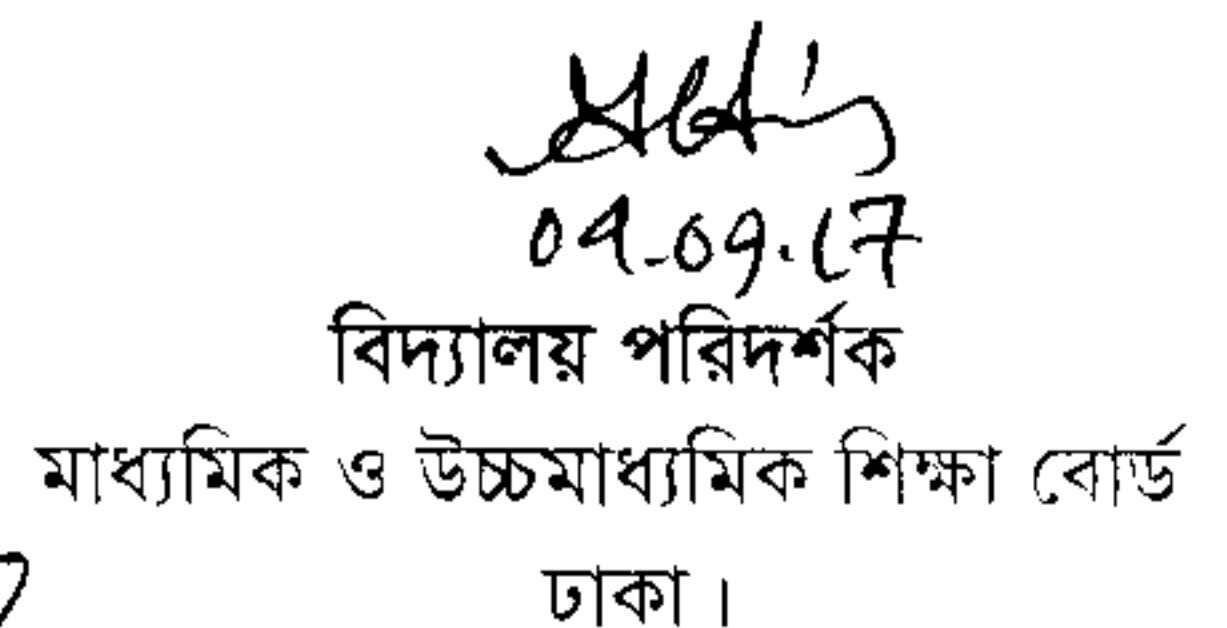 04-09.17
বিদ্যালয় পরিদর্শক
মাধ্যমিক ও উচ্চমাধ্যমিক শিক্ষা বোর্ড
ঢাকা।